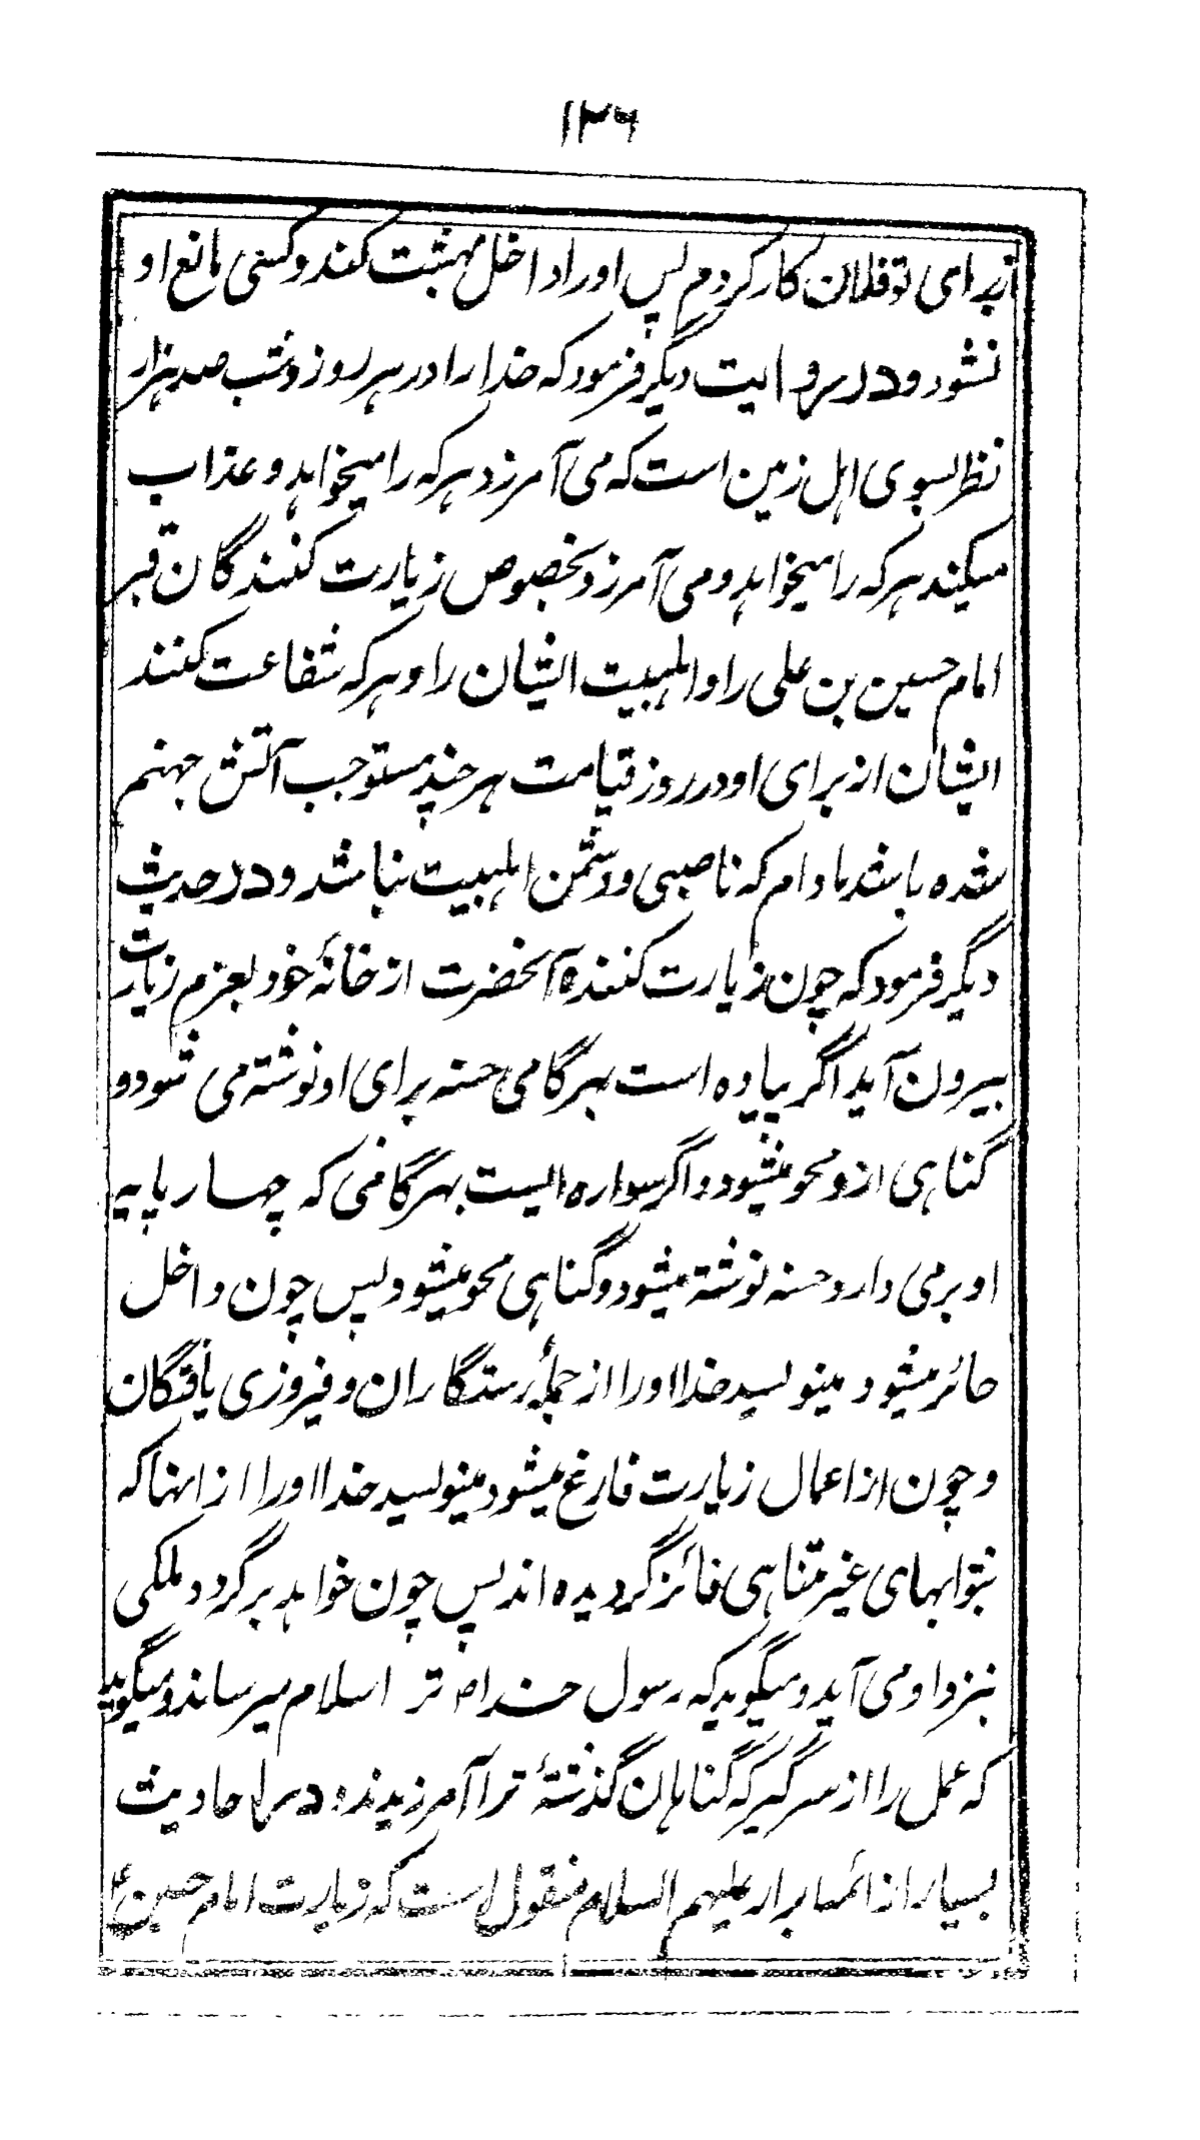 ۱۲۶
از برای تو فلان کار کردم پس او را داخل بهشت کند و کسی مانع او
نشود و در روایت دیگر فرمود که خدا را در هر روز و شب صد هزار
نظر بسوی اهل زمین است که می آمرزد هر که را میخواهد و عذاب
میکند هر که را میخواهد و می آمرزد بخصوص زیارت کنندگان قبر
امام حسین بن علی را و اهلبیت ایشان را و هر که شفاعت کنند
ایشان از برای او در روز قیامت هر چند مستوجب آتش جهنم
شده باشد مادام که ناصبی و دشمن اهلبیت نباشد و در حدیث
دیگر فرمود که چون زیارت کننده آنحضرت از خانهٔ خود بعزم زیارت
بیرون آید اگر پیاده است بهر گامی حسنه برای او نوشته می شود و
گناهی ازو محو میشود و اگر سواره است بهر گامی که چهار پایه
او بر می دارد حسنه نوشته میشود و گناهی محو میشود پس چون داخل
حائر میشود مینویسد خدا او را از جملهٔ رستگاران و فیروزی یافتگان
و چون از اعمال زیارت فارغ میشود مینویسد خدا او را از انها که
بثوابهای غیر متناهی فائز گردیده اند پس چون خواهد برگردد ملکی
بنزد او می آید و میگوید که رسول خدا ص ترا سلام میرساند و میگوید
که عمل را از سر گیر که گناهان گذشتهٔ ترا آمرزیدند و در احادیث
بسیار از ائمه ابرار علیهم السلام منقول است که زیارت امام حسین ع